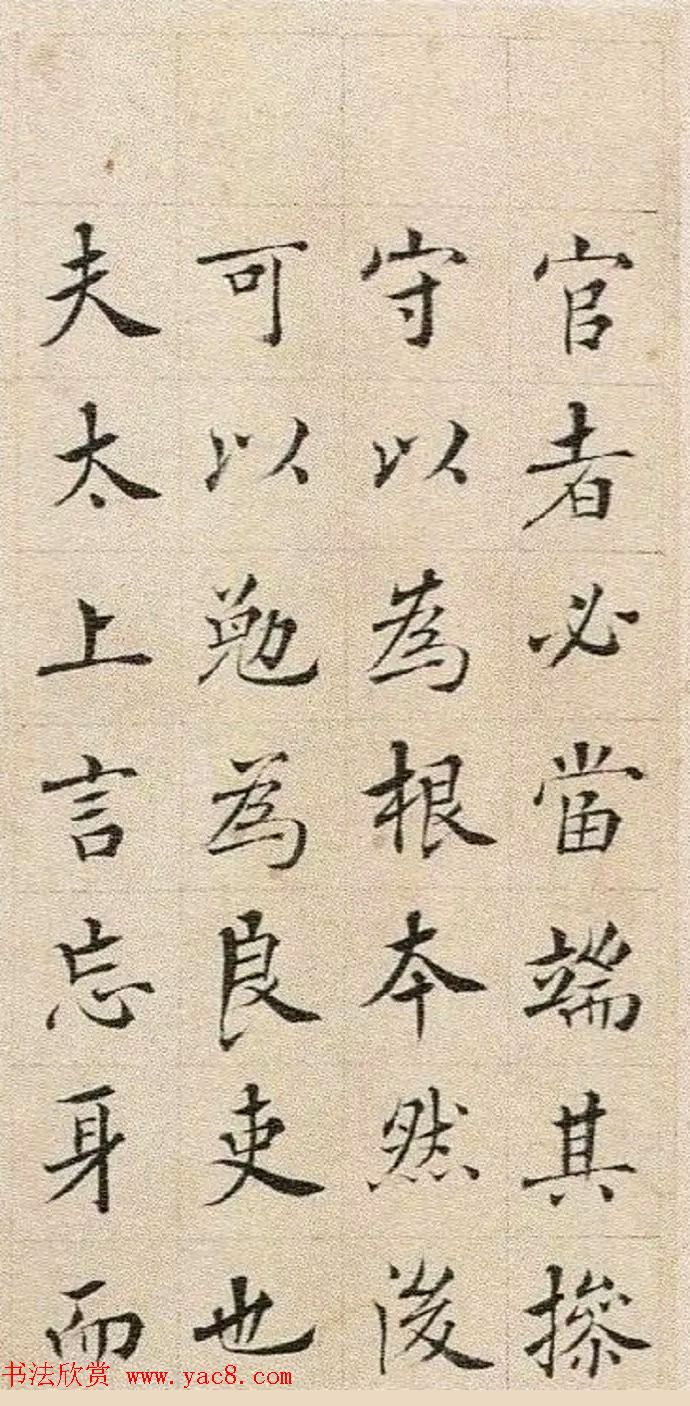 官者必當端其操
守以為根本然後
可以勉為良吏也
夫太上言忘身而
书法欣赏 www.yac8.com